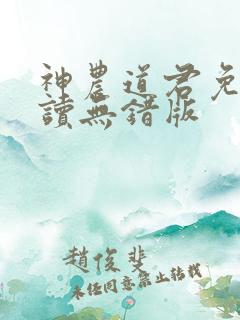 神農道君免
讀無錯版
趙俊斐
未經同意禁止转载